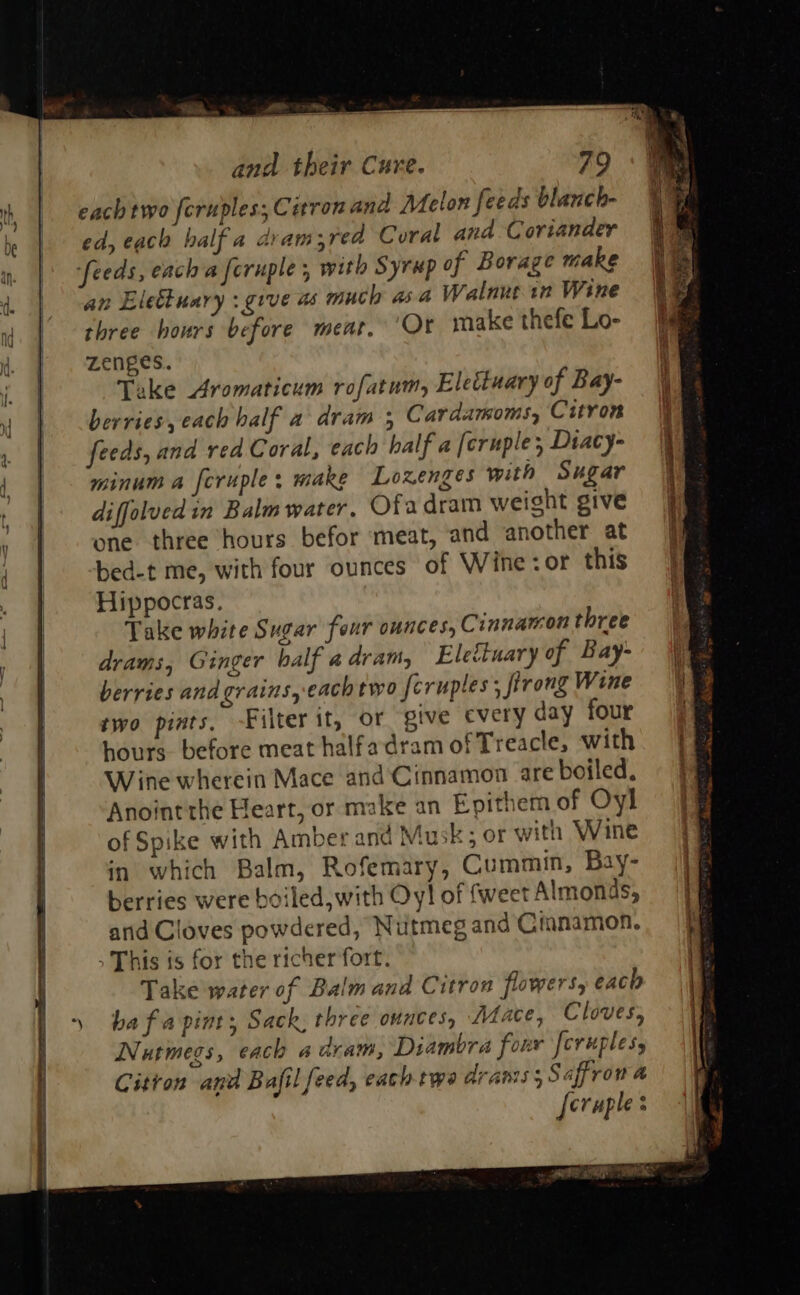 and their Cure. 79
each two ſcruples; Citron and Melon ſeeds blanch-
ed, each half a dram; red Coral and Coriander
ſeeds, each a ſcruple; with Syrup of Borage make
an Electuary : give as much as a Walnut in Wine
three hours before meat. Or make theſe Lo-
zenges.
Take Aromaticum roſatum, Electuary of Bay-
berries, each half a dram ; Cardamoms, Citron
ſeeds, and red Coral, each half a ſcruple; Diacy-
minum a ſcruple : make Lozenges with Sugar
diſſolved in Balm water. Of a dram weight give
one three hours befor meat, and another at
bed-t me, with four ounces of Wine : or this
Hippocras.
Take white Sugar four ounces, Cinnamon three
drams, Ginger half a dram, Electuary of Bay-
berries and grains, each two ſcruples ; ſtrong Wine
two pints. Filter it, or give every day four
hours before meat half a dram of Treacle, with
Wine wherein Mace and Cinnamon are boiled.
Anoint the Heart, or make an Epithem of Oyl
of Spike with Amber and Musk ; or with Wine
in which Balm, Roſemary, Cummin, Bay-
berries were boiled, with Oyl of ſweet Almonds,
and Cloves powdered, Nutmeg and Cinnamon.
This is for the richer ſort.
Take water of Balm and Citron flowers, each
ha f a pint ; Sack, three ounces, Mace, Cloves,
Nutmegs, each a dram, Diambra four ſcruples,
Citron and Baſil ſeed, each two drams ; Saffron a
ſcruple :
th,
be
in-
d.
nd